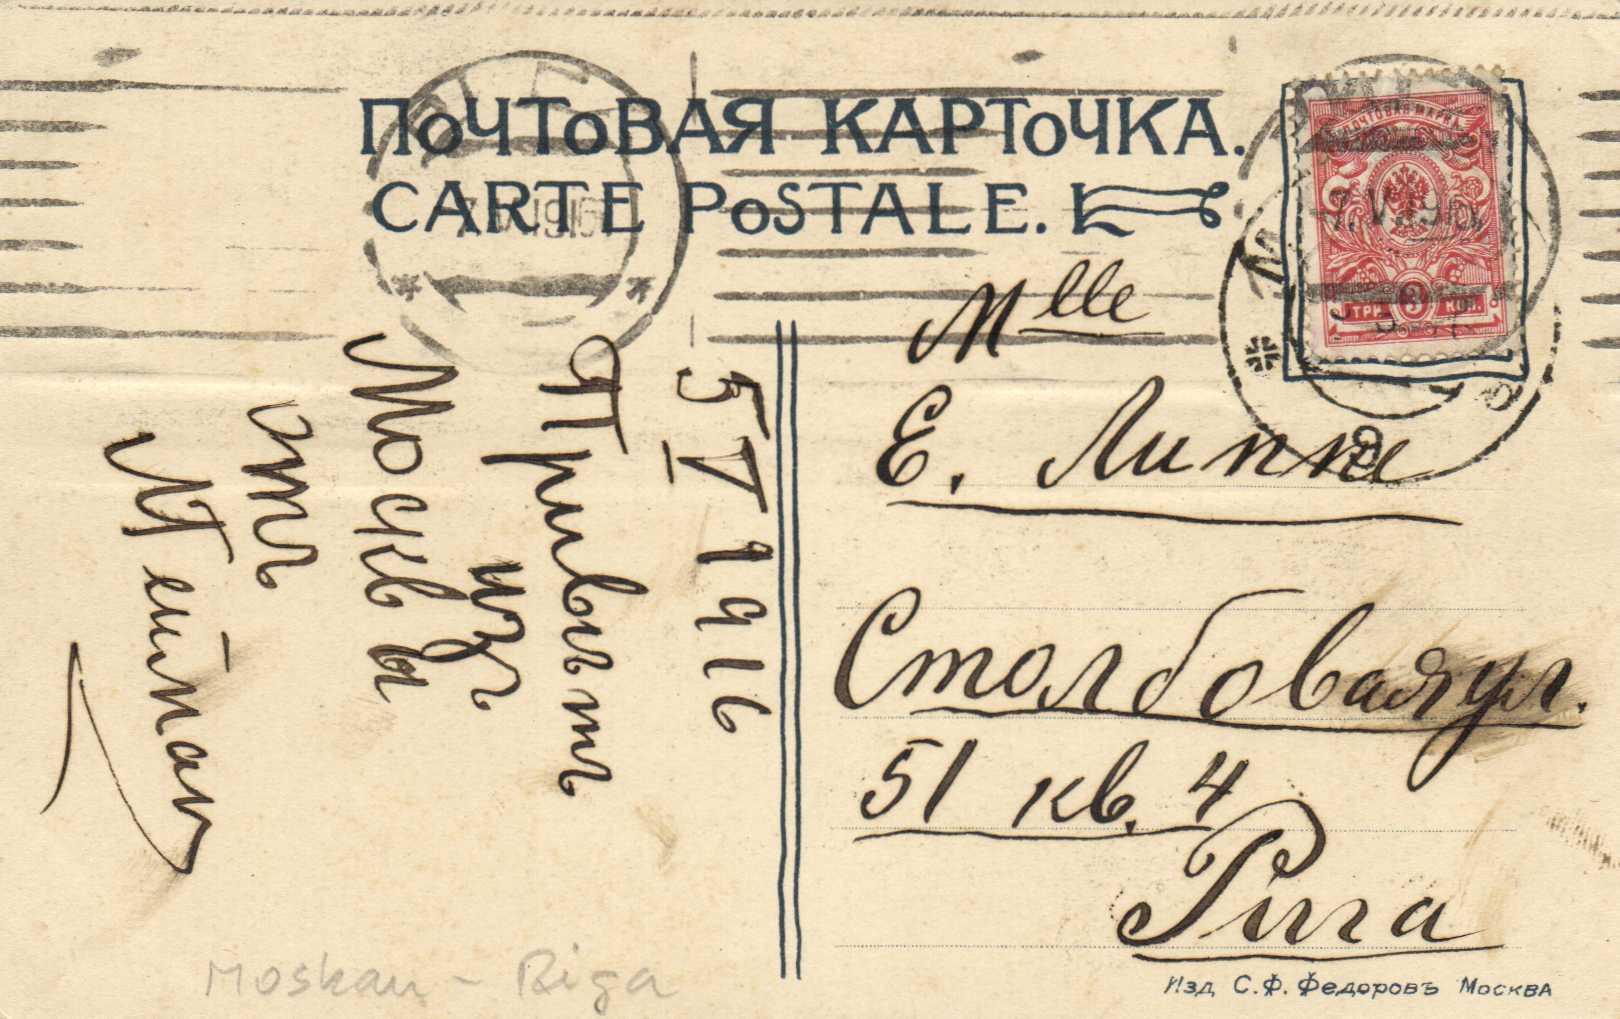 ПОЧТОВАЯ КАРТОЧКА.
CARTE POSTALE.
ПОЧТОВАЯ МАРКА
ТРИ 3 КОП.
7.V.1916
Mlle
Е. Липпе
Столбовая ул.
51 кв. 4
Рига
5 V 1916
Привѣтъ
изъ
Москвы
отъ
Изд. С.Ф. Федоровъ Москва
Moskau - Riga